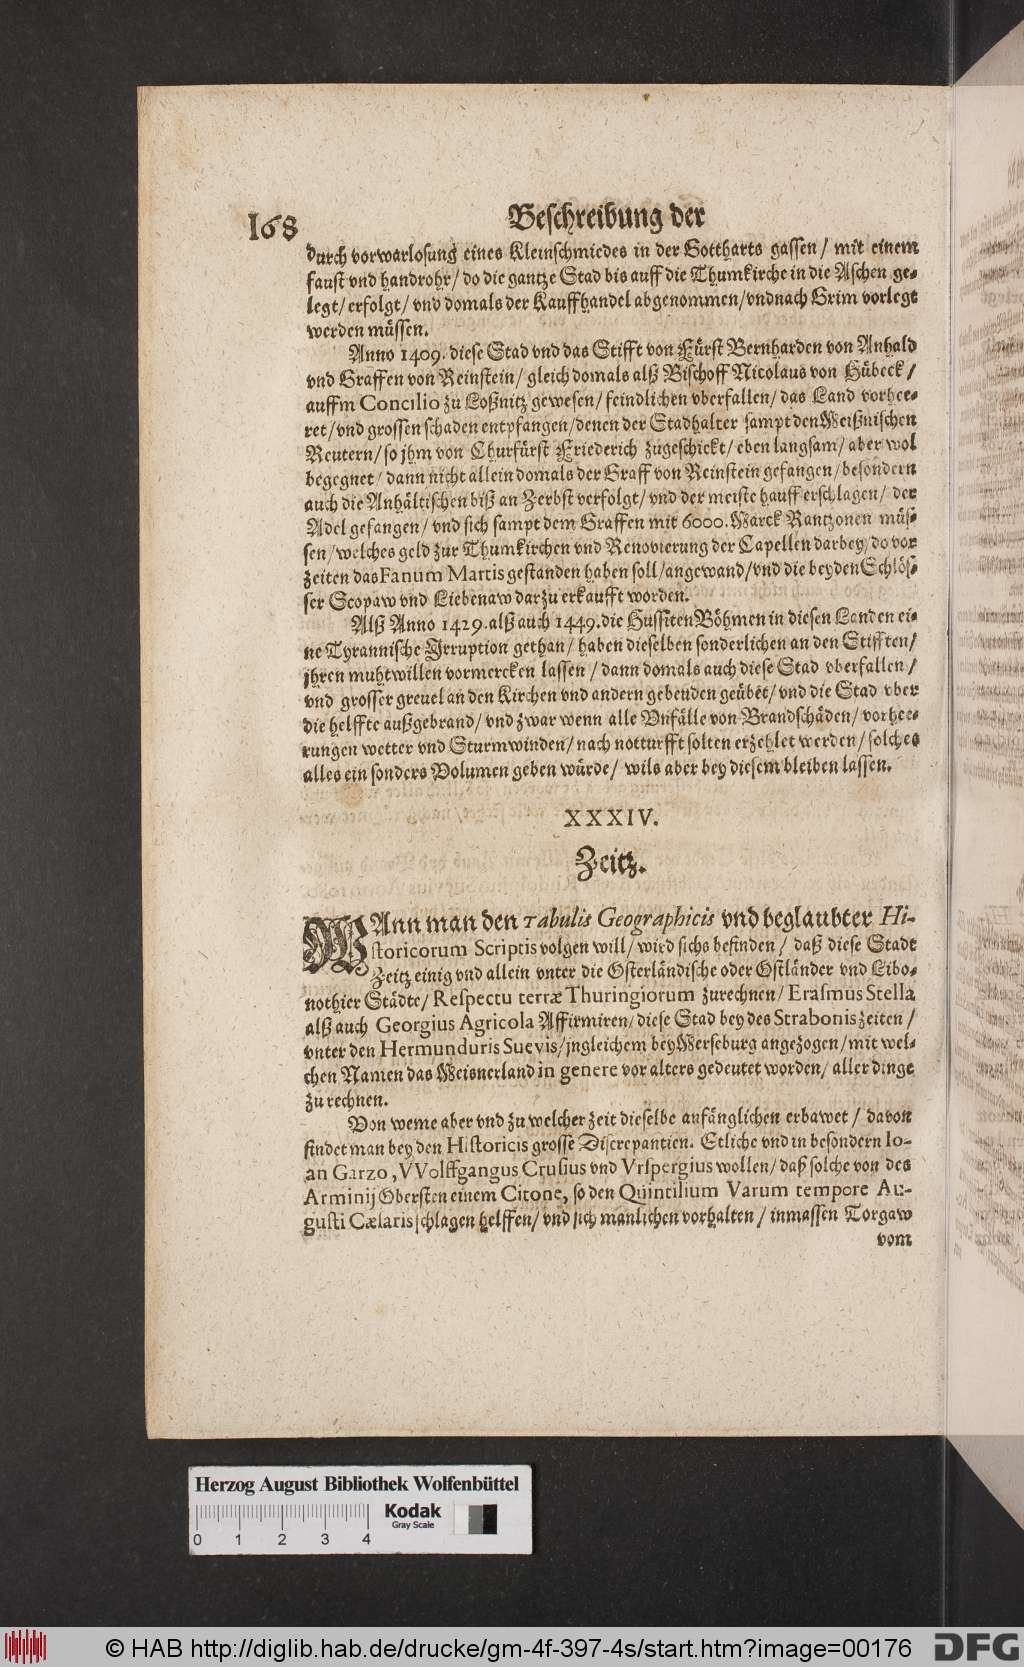 168
Beschreibung der
durch vorwarlosung eines Kleinschmiedes in der Gottharts gassen / mit einem
faust vnd handrohr / do die gantze Stad bis auff die Thumkirche in die Aschen ge-
legt / erfolgt / vnd domals der Kauffhandel abgenommen / vnd nach Grim vorlegt
werden müssen.
Anno 1409. diese Stad vnd das Stifft von Fürst Bernharden von Anhald
vnd Graffen von Reinstein / gleich domals alß Bischoff Nicolaus von Hübeck /
auffm Concilio zu Loßnitz gewesen / feindlichen vberfallen / das Land vorhee-
ret / vnd grossen schaden entpfangen / denen der Stadhalter sampt den Meißnischen
Reutern / so jhm von Churfürst Friederich zugeschickt / eben langsam / aber wol
begegnet / dann nicht allein domals der Graff von Reinstein gefangen / besondern
auch die Anhältischen biß an Zerbst verfolgt / vnd der meiste hauff erschlagen / der
Adel gefangen / vnd sich sampt dem Graffen mit 6000. Marck Rantzonen müs-
sen / welches geld zur Thumkirchen vnd Renovierung der Capellen darbey / do vor
zeiten das Fanum Martis gestanden haben soll / angewand / vnd die beyden Schlös-
ser Scopaw vnd Liebenaw darzu erkaufft worden.
Alß Anno 1429. alß auch 1449. die Hussiten Böhmen in diesen Landen ei-
ne Tyrannische Irruption gethan / haben dieselben sonderlichen an den Stifften /
jhren muhtwillen vormercken lassen / dann domals auch diese Stad vberfallen /
vnd grosser greuel an den Kirchen vnd andern gebenden geübet / vnd die Stad vber
die helffte außgebrand / vnd zwar wenn alle Vnfälle von Brandschäden / vorhee-
rungen wetter vnd Sturmwinden / nach notturfft solten erzehlet werden / solches
alles ein sonders Volumen geben würde / wils aber bey diesem bleiben lassen.
XXXIV.
Zeitz.
WAnn man den Tabulis Geographicis vnd beglaubter Hi-
storicorum Scriptis volgen will / wird sichs befinden / daß diese Stadt
Zeitz einig vnd allein vnter die Osterländische oder Ostländer vnd Libo-
nothier Städte / Respectu terræ Thuringiorum zurechnen / Erasmus Stella
alß auch Georgius Agricola Affirmiren / diese Stad bey des Strabonis zeiten /
vnter den Hermunduris Suevis / jngleichem bey Merseburg angezogen / mit wel-
chen Namen das Meisnerland in genere vor alters gedeutet worden / aller dinge
zu rechnen.
Von weme aber vnd zu welcher zeit dieselbe anfänglichen erbawet / davon
findet man bey den Historicis grosse Discrepantien. Etliche vnd in besondern Io-
an Garzo, VVolffgangus Crusius vnd Vrspergius wollen / daß solche von des
Arminij Obersten einem Citone, so den Quintilium Varum tempore Au-
gusti Cæsaris schlagen helffen / vnd sich manlichen vorhalten / inmassen Torgaw
vom
Herzog August Bibliothek Wolfenbüttel
Kodak
Gray Scale
0 1 2 3 4
© HAB http://diglib.hab.de/drucke/gm-4f-397-4s/start.htm?image=00176
DFG